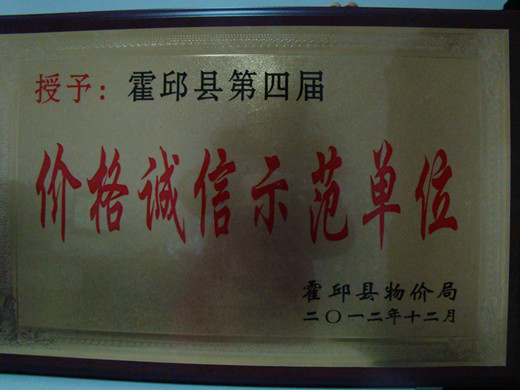 授予：霍邱县第四届
价格诚信示范单位
霍邱县物价局
二〇一二年十二月